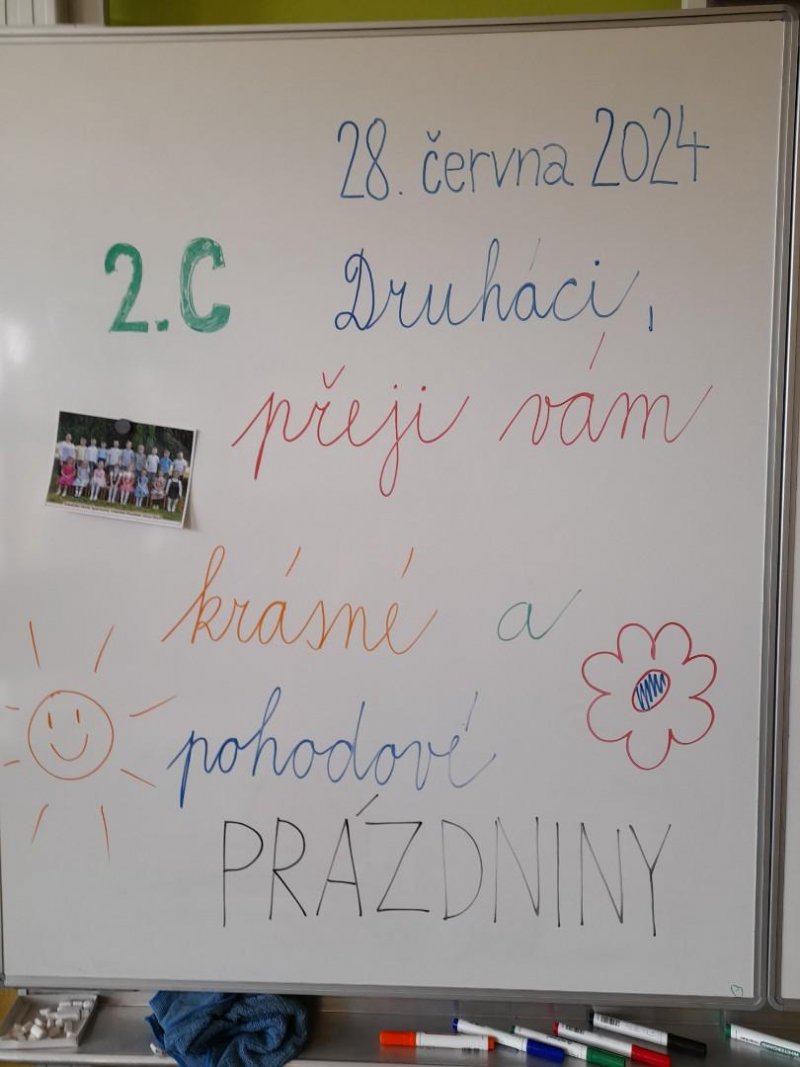 28. června 2024
2.C
Druháci,
přeji vám
krásné a
pohodové
PRÁZDNINY